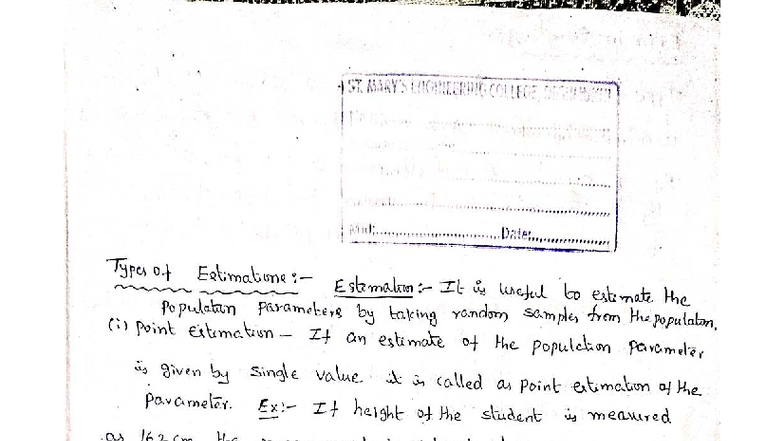 ST. MARY'S ENGINEERING COLLEGE,
Date:
Types of Estimations:- Estimation:- It is useful to estimate the
population parameters by taking random samples from the population.
(i) Point Estimation - If an estimate of the population parameter
is given by single value it is called as point estimation of the
parameter. Ex:- If height of the student is measured
as 162 cm, the